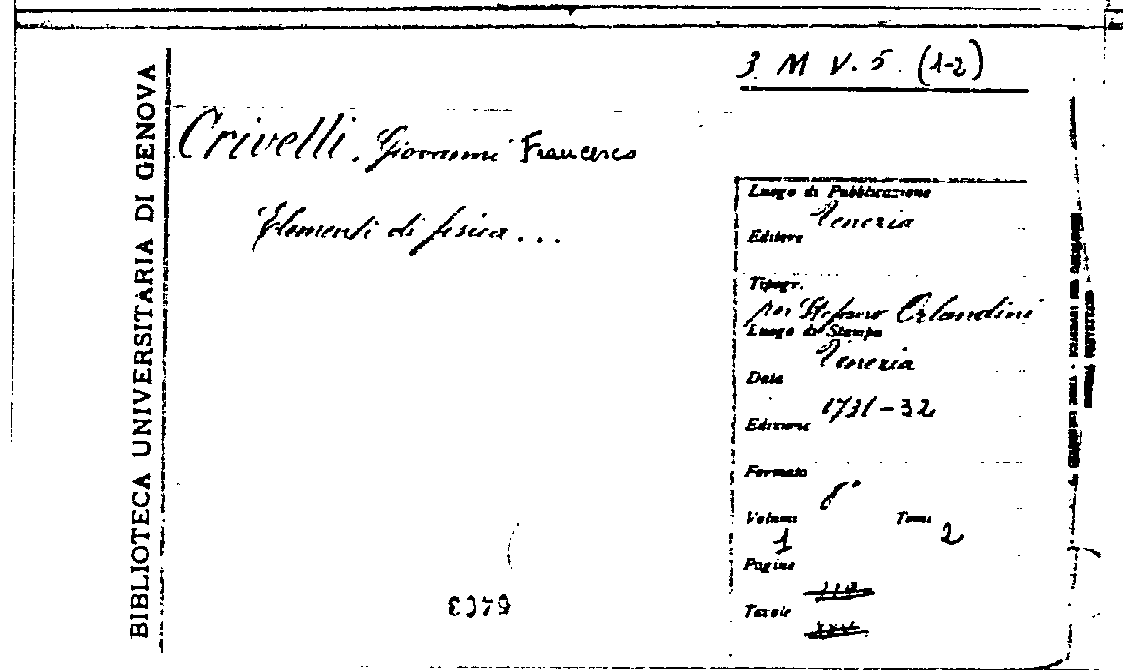 BIBLIOTECA UNIVERSITARIA DI GENOVA
3 M V. 5. (1-2)
Crivelli, Giovanni Francesco
Elementi di fisica...
Luogo di Pubblicazione
Venezia
Editore
Tipogr.
per Stefano Orlandini
Luogo di Stampa
Venezia
Data
1731-32
Edizione
Formato
8°
Volumi Tomi
1 2
Pagine
Tavole